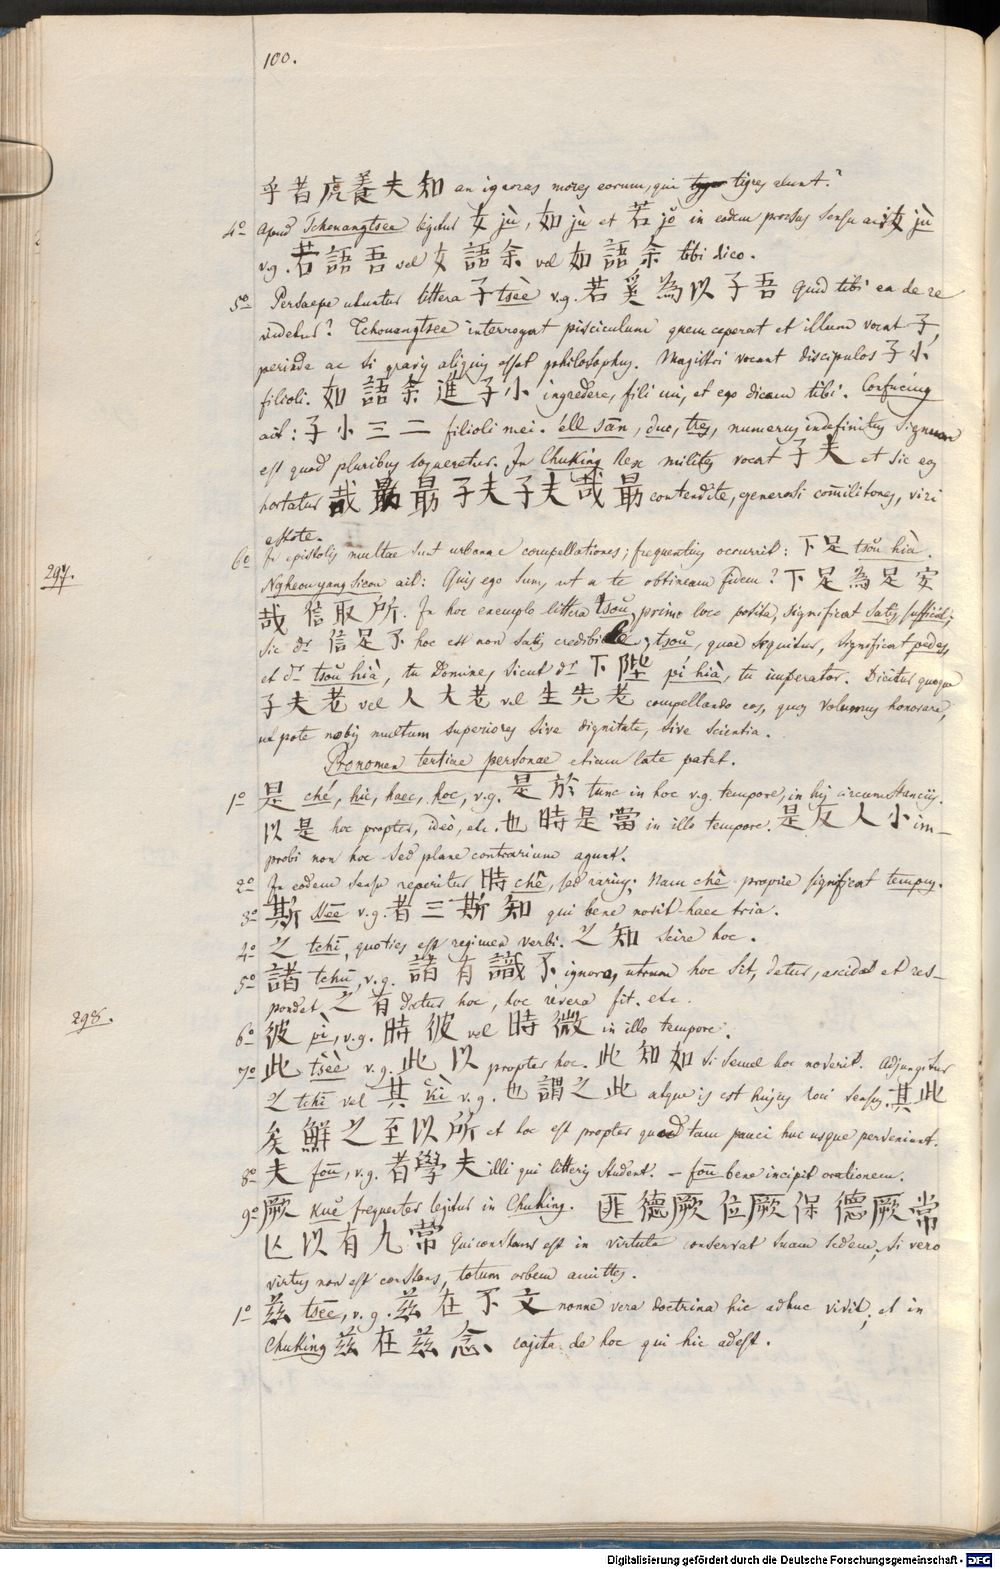 100.
乎者虎養夫知 an ignoras mores eorum, qui tigres alunt?
4º Apud Tchouangtsee legitur 女 jù, 如 jù et 若 jŏ in eodem prorsus sensu ac 汝 jù
v.g. 若語吾 vel 女語余 vel 如語余 tibi dico.
5º Persaepe utuntur littera 子 tsèe v.g. 若奚為以子吾 Quid tibi ea de re
videtur? Tchouangtsee interrogat pisciculum quem ceperat et illum vocat 子,
perinde ac si gravis aliquis esset philosophus. Magistri vocant discipulos 子小
filioli. 如語余進子小 ingredere, fili mi, et ego dicam tibi. Confucius
ait: 子小三二 filioli mei. éll sān, duo, tres, numerus indefinitus signum
est quod pluribus loqueretur. In Chuking Rex milites vocat 子夫 et sic eos
hortatur 哉勖勖子夫子夫哉勖 contendite, generosi commilitones, viri
estote.
297.
6º In epistolis multae sunt urbanae compellationes; frequentius occurrit: 下足 tsoŭ hià.
Ngheouyang sieou ait: Quis ego sum, ut a te obtineam fidem? 下足為足安
哉信取所. In hoc exemplo littera tsoŭ, primo loco posita, significat satis, sufficit;
sic dr 信足不 hoc est non satis credibile; tsoŭ, quod sequitur, significat pedes,
et dr tsoŭ hià, tu Domine, sicut dr 下陛 pí hià, tu imperator. Dicitur quoque
子夫老 vel 人大老 vel 生先老 compellando eos, quos volumus honorare,
ut pote nobis multum superiores sive dignitate, sive scientia.
Pronomen tertiae personae etiam late patet.
1º 是 ché, hic, haec, hoc, v.g. 是於 tunc in hoc v.g. tempore, in his circumstanciis.
以是 hoc propter, ideò, etc. 也時是當 in illo tempore. 是反人小 im-
probi non hoc sed plane contrarium agunt.
2º In eodem sensu reperitur 時 chê, sed rarius; Nam chê proprie significat tempus.
3º 斯 ssēe v.g. 者三斯知 qui bene nosit haec tria.
4º 之 tchī, quoties est regimen verbi. 之知 scire hoc.
5º 諸 tchū, v.g. 諸有識不 ignoro, utrum hoc sit, detur, accidat et res-
pondet 之有 datur hoc, hoc revera fit. etc.
298.
6º 彼 pì, v.g. 時彼 vel 時微 in illo tempore.
7º 此 tsèe v.g. 此以 propter hoc. 此知如 si semel hoc noverit. Adjungitur
之 tchī vel 其 kî v.g. 也謂之此 atque is est hujus loci sensus. 其此
矣鮮之至以所 et hoc est propter quod tam pauci huc usque perveniunt.
8º 夫 foū, v.g. 者學夫 illi qui litteris student. – foū bene incipit orationem.
9º 厥 kuĕ frequenter legitur in Chuking. 匪德厥位厥保德厥常
亡以有九常 Qui constans est in virtute conservat suam sedem, si vero
virtus non est constans, totum orbem amittes.
1º 茲 tsēe, v.g. 茲在不文 nonne vera doctrina hic adhuc vivit, et in
Chuking 茲在茲念 cogita de hoc qui hic adest.
Digitalisierung gefördert durch die Deutsche Forschungsgemeinschaft - DFG